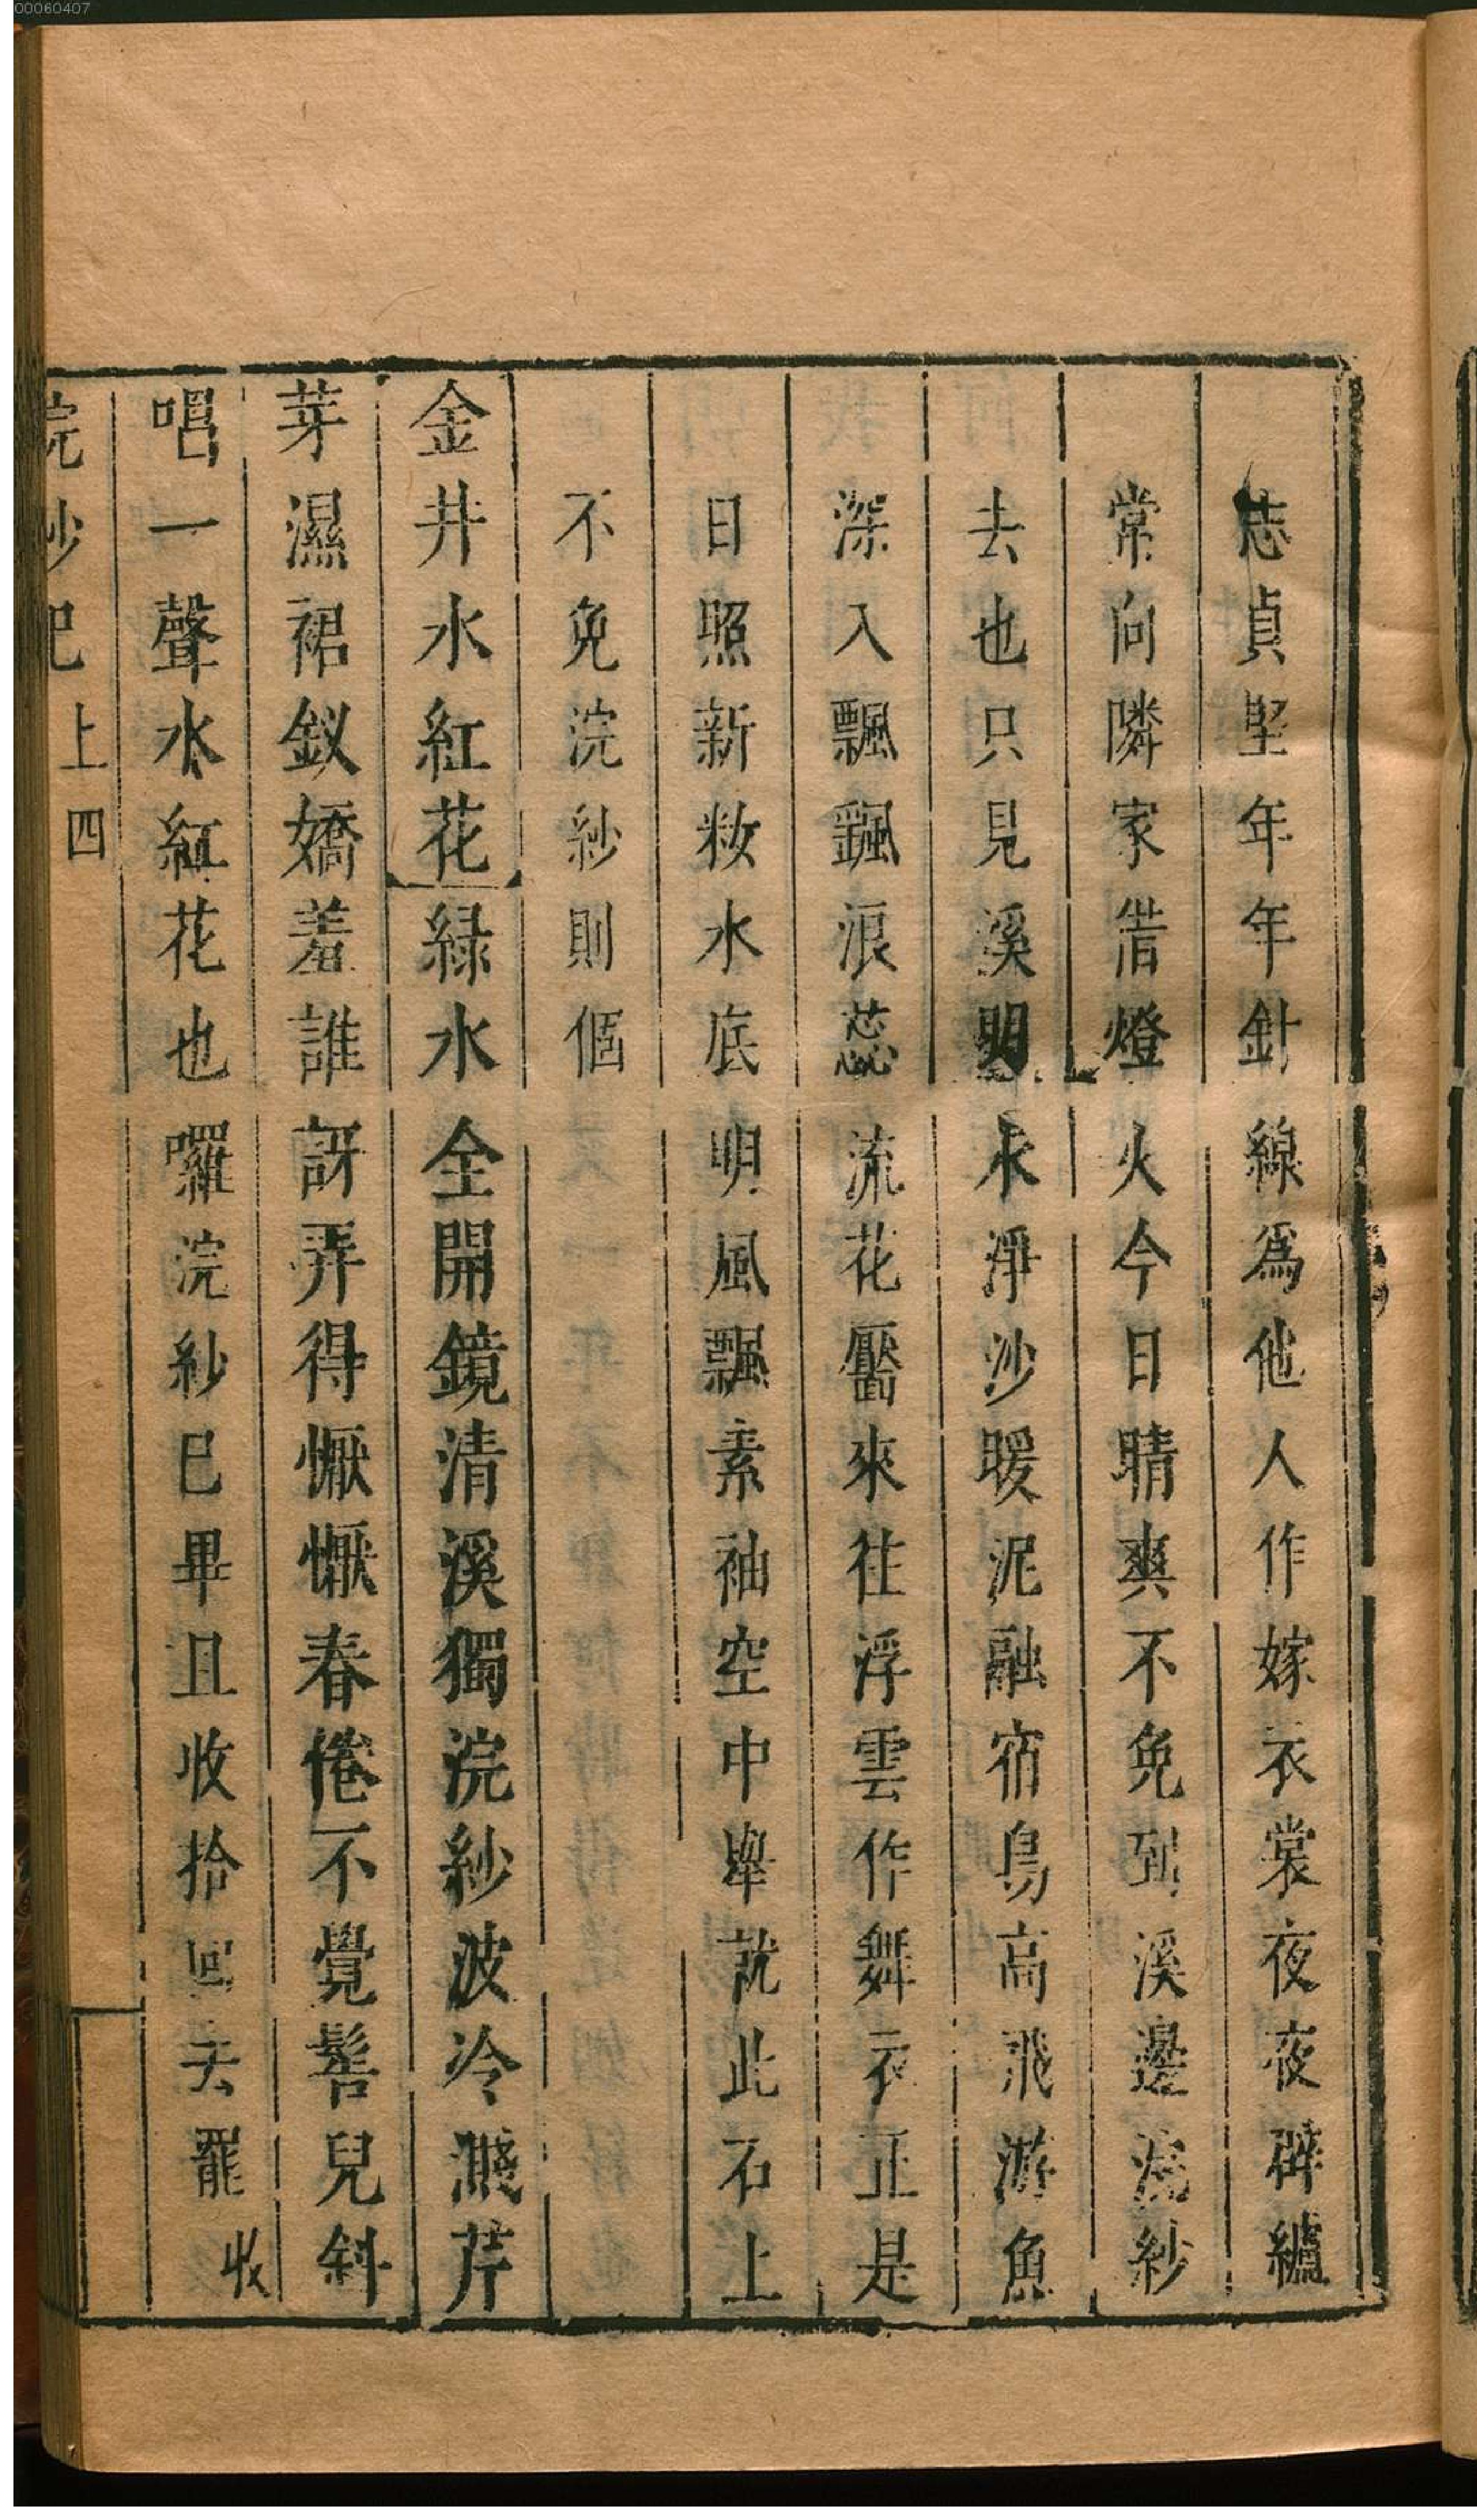 志貞堅年年針線爲他人作嫁衣裳夜夜辟纑
常向隣家借燈火今日晴爽不免到溪邊浣紗
去也只見溪明水淨沙暖泥融宿鳥高飛游魚
深入飄飄浪蕊流花靨來往浮雲作舞衣正是
日照新粧水底明風飄素袖空中舉就此石上
不免浣紗則個
金井水紅花綠水全開鏡清溪獨浣紗波冷濺芹
芽濕裙釵嬌羞誰訝弄得懨懨春倦不覺髻兒斜
唱一聲水紅花也囉浣紗已畢且收拾回去罷收
浣紗記上四
00060407